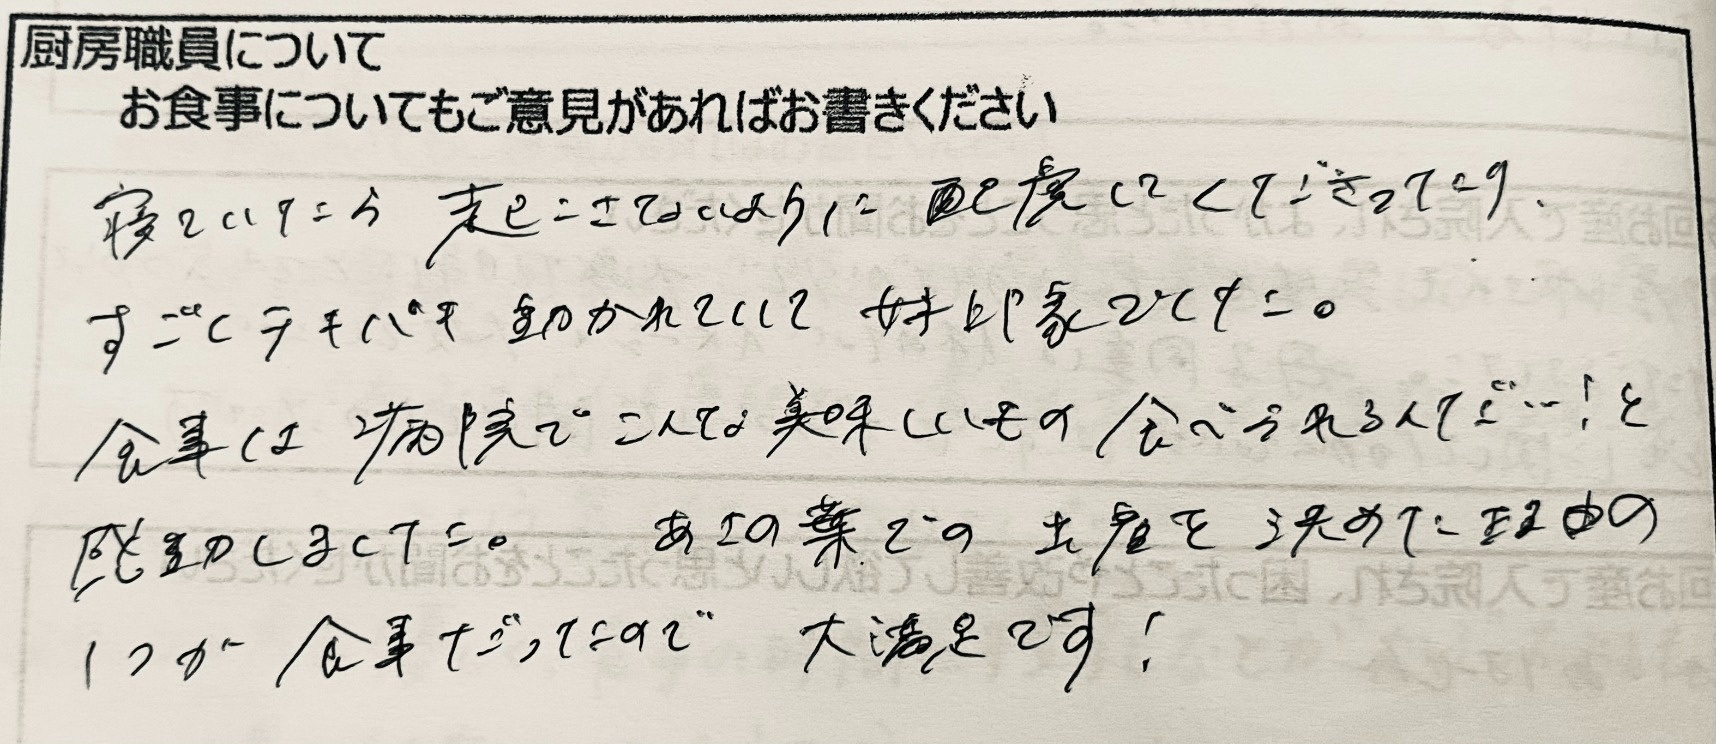 厨房職員について
お食事についてもご意見があればお書きください
寝ていたら 起こさないように 配慮して くださってたり、
すごくテキパキ 動かれていて 好印象でした。
食事は 病院でこんな美味しいもの 食べられるんだ…!と
感動しました。 あさの葉での 出産を 決めた理由の
1つが 食事だったので 大満足です!